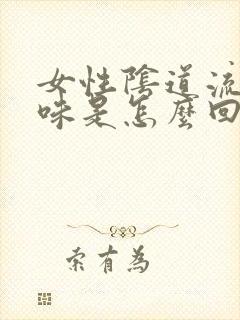 女性陰道流
味是怎麼回
索有為